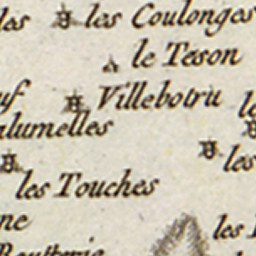 les les Coulonges
le Teson
uf Villebotru le
lumelles
les
les Touches
ne les